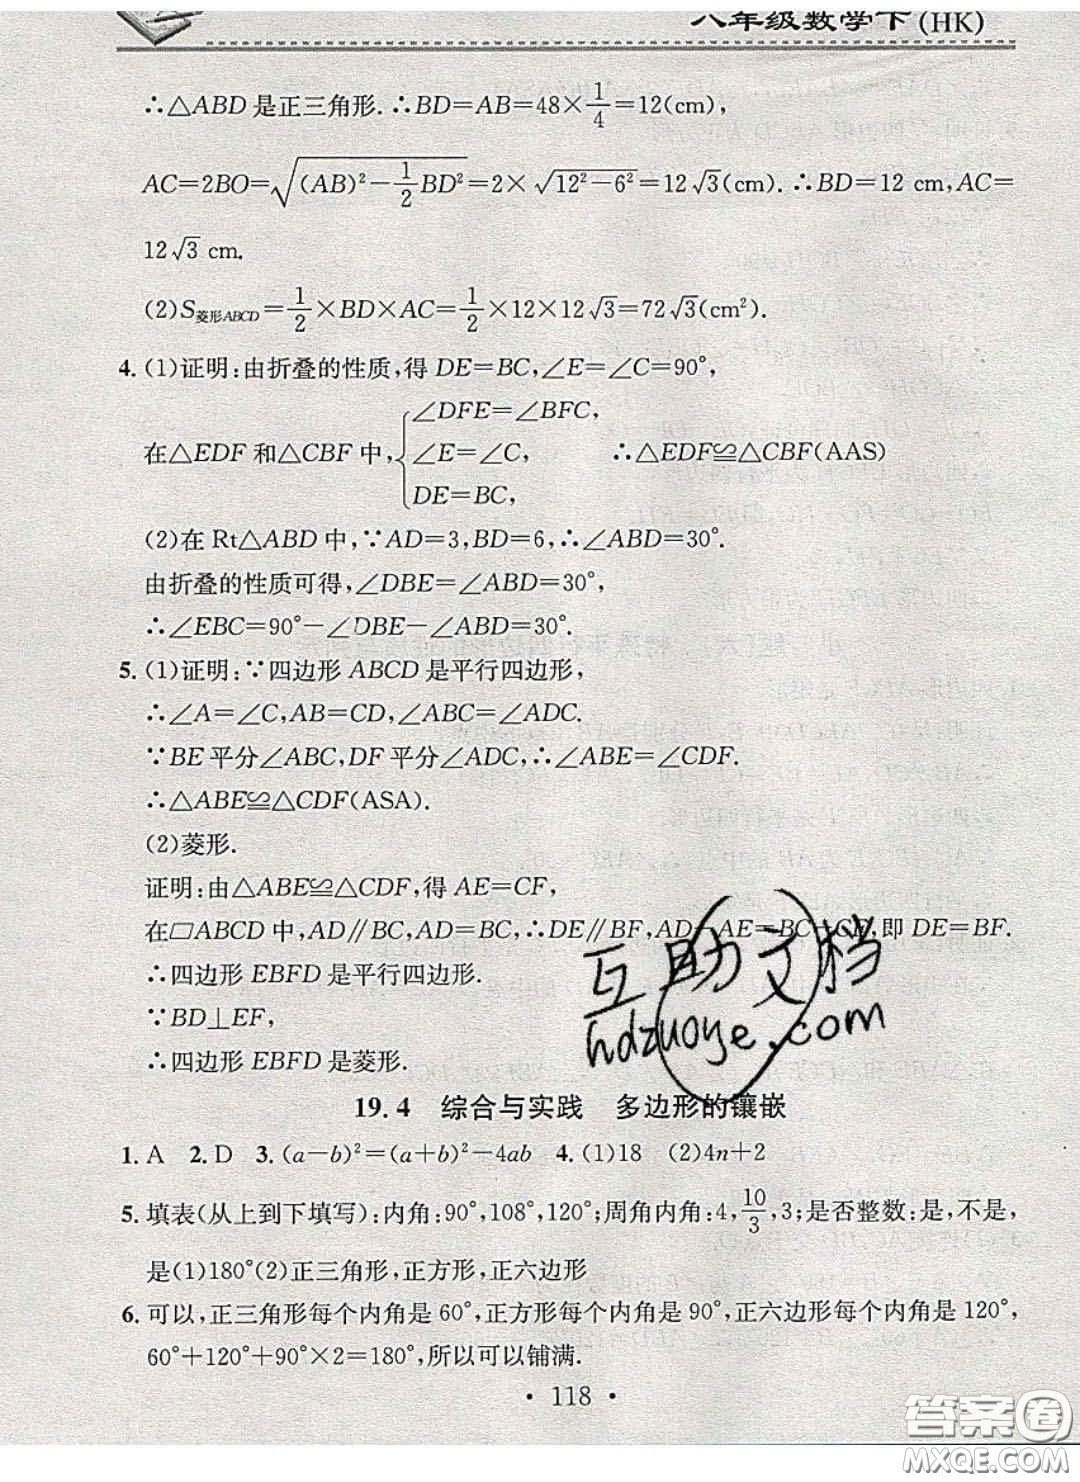 八年级数学下(HK)
∴△ABD是正三角形.∴BD=AB=48×1/4=12(cm),
AC=2BO=√((AB)²-1/2BD²)=2×√(12²-6²)=12√3(cm).∴BD=12 cm,AC=
12√3 cm.
(2)S菱形ABCD=1/2×BD×AC=1/2×12×12√3=72√3(cm²).
4.(1)证明:由折叠的性质,得DE=BC,∠E=∠C=90°,
∠DFE=∠BFC,
在△EDF和△CBF中,{∠E=∠C, ∴△EDF≌△CBF(AAS)
DE=BC,
(2)在Rt△ABD中,∵AD=3,BD=6,∴∠ABD=30°.
由折叠的性质可得,∠DBE=∠ABD=30°,
∴∠EBC=90°-∠DBE-∠ABD=30°.
5.(1)证明:∵四边形ABCD是平行四边形,
∴∠A=∠C,AB=CD,∠ABC=∠ADC.
∵BE平分∠ABC,DF平分∠ADC,∴∠ABE=∠CDF.
∴△ABE≌△CDF(ASA).
(2)菱形.
证明:由△ABE≌△CDF,得AE=CF,
在▱ABCD中,AD∥BC,AD=BC,∴DE∥BF,AD-AE=BC-CF,即DE=BF.
∴四边形EBFD是平行四边形.
∵BD⊥EF,
∴四边形EBFD是菱形.
互助文档
hdzuoye.com
19.4 综合与实践 多边形的镶嵌
1. A 2. D 3. (a-b)²=(a+b)²-4ab 4. (1)18 (2)4n+2
5. 填表(从上到下填写):内角:90°,108°,120°;周角内角:4,10/3,3;是否整数:是,不是,
是(1)180°(2)正三角形,正方形,正六边形
6. 可以,正三角形每个内角是60°,正方形每个内角是90°,正六边形每个内角是120°,
60°+120°+90°×2=180°,所以可以铺满.
· 118 ·
答案圈
MXQE.COM